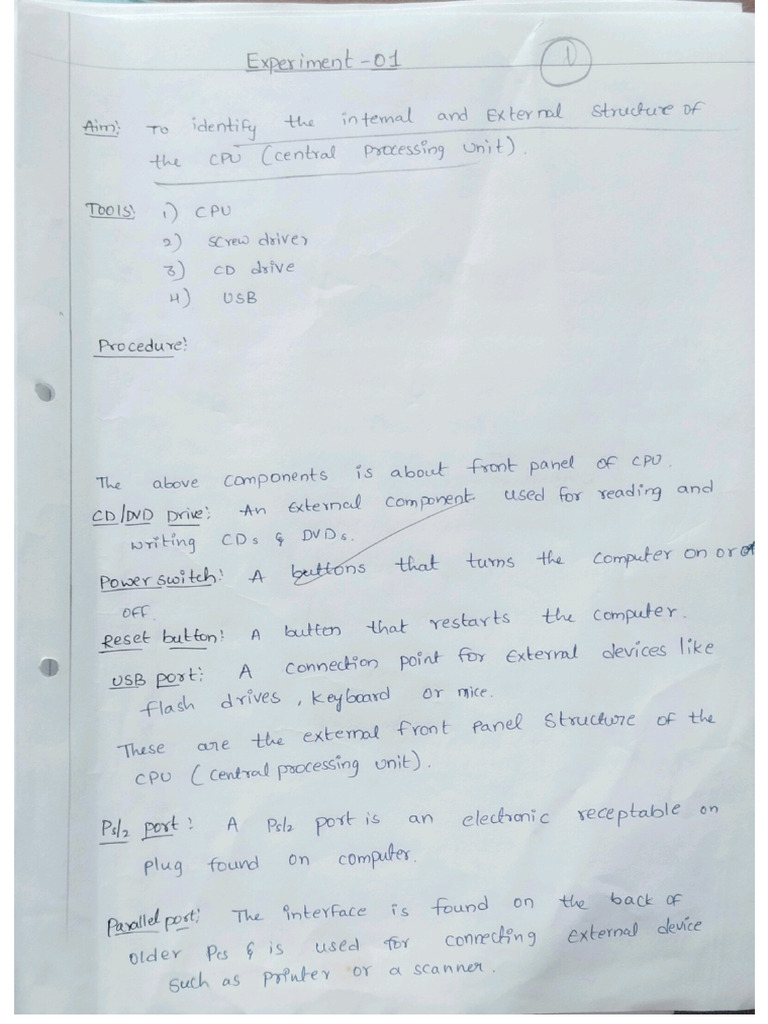 Experiment - 01
1
Aim: To identify the internal and External Structure of
the CPU (central Processing Unit).
Tools: 1) CPU
2) Screw driver
3) CD drive
4) USB
Procedure:
The above components is about front panel of CPU.
CD/DVD Drive: An External component used for reading and
writing CDs & DVDs.
Power switch: A buttons that turns the computer on or of
OFF.
Reset button: A button that restarts the computer.
USB port: A connection point for External devices like
flash drives, Keyboard or mice.
These are the external front Panel Structure of the
CPU (Central processing Unit).
Ps/2 port: A Ps/2 port is an electronic receptable on
plug found on computer.
Parallel port: The interface is found on the back of
older Pcs & is used for connecting external device
such as printer or a scanner.